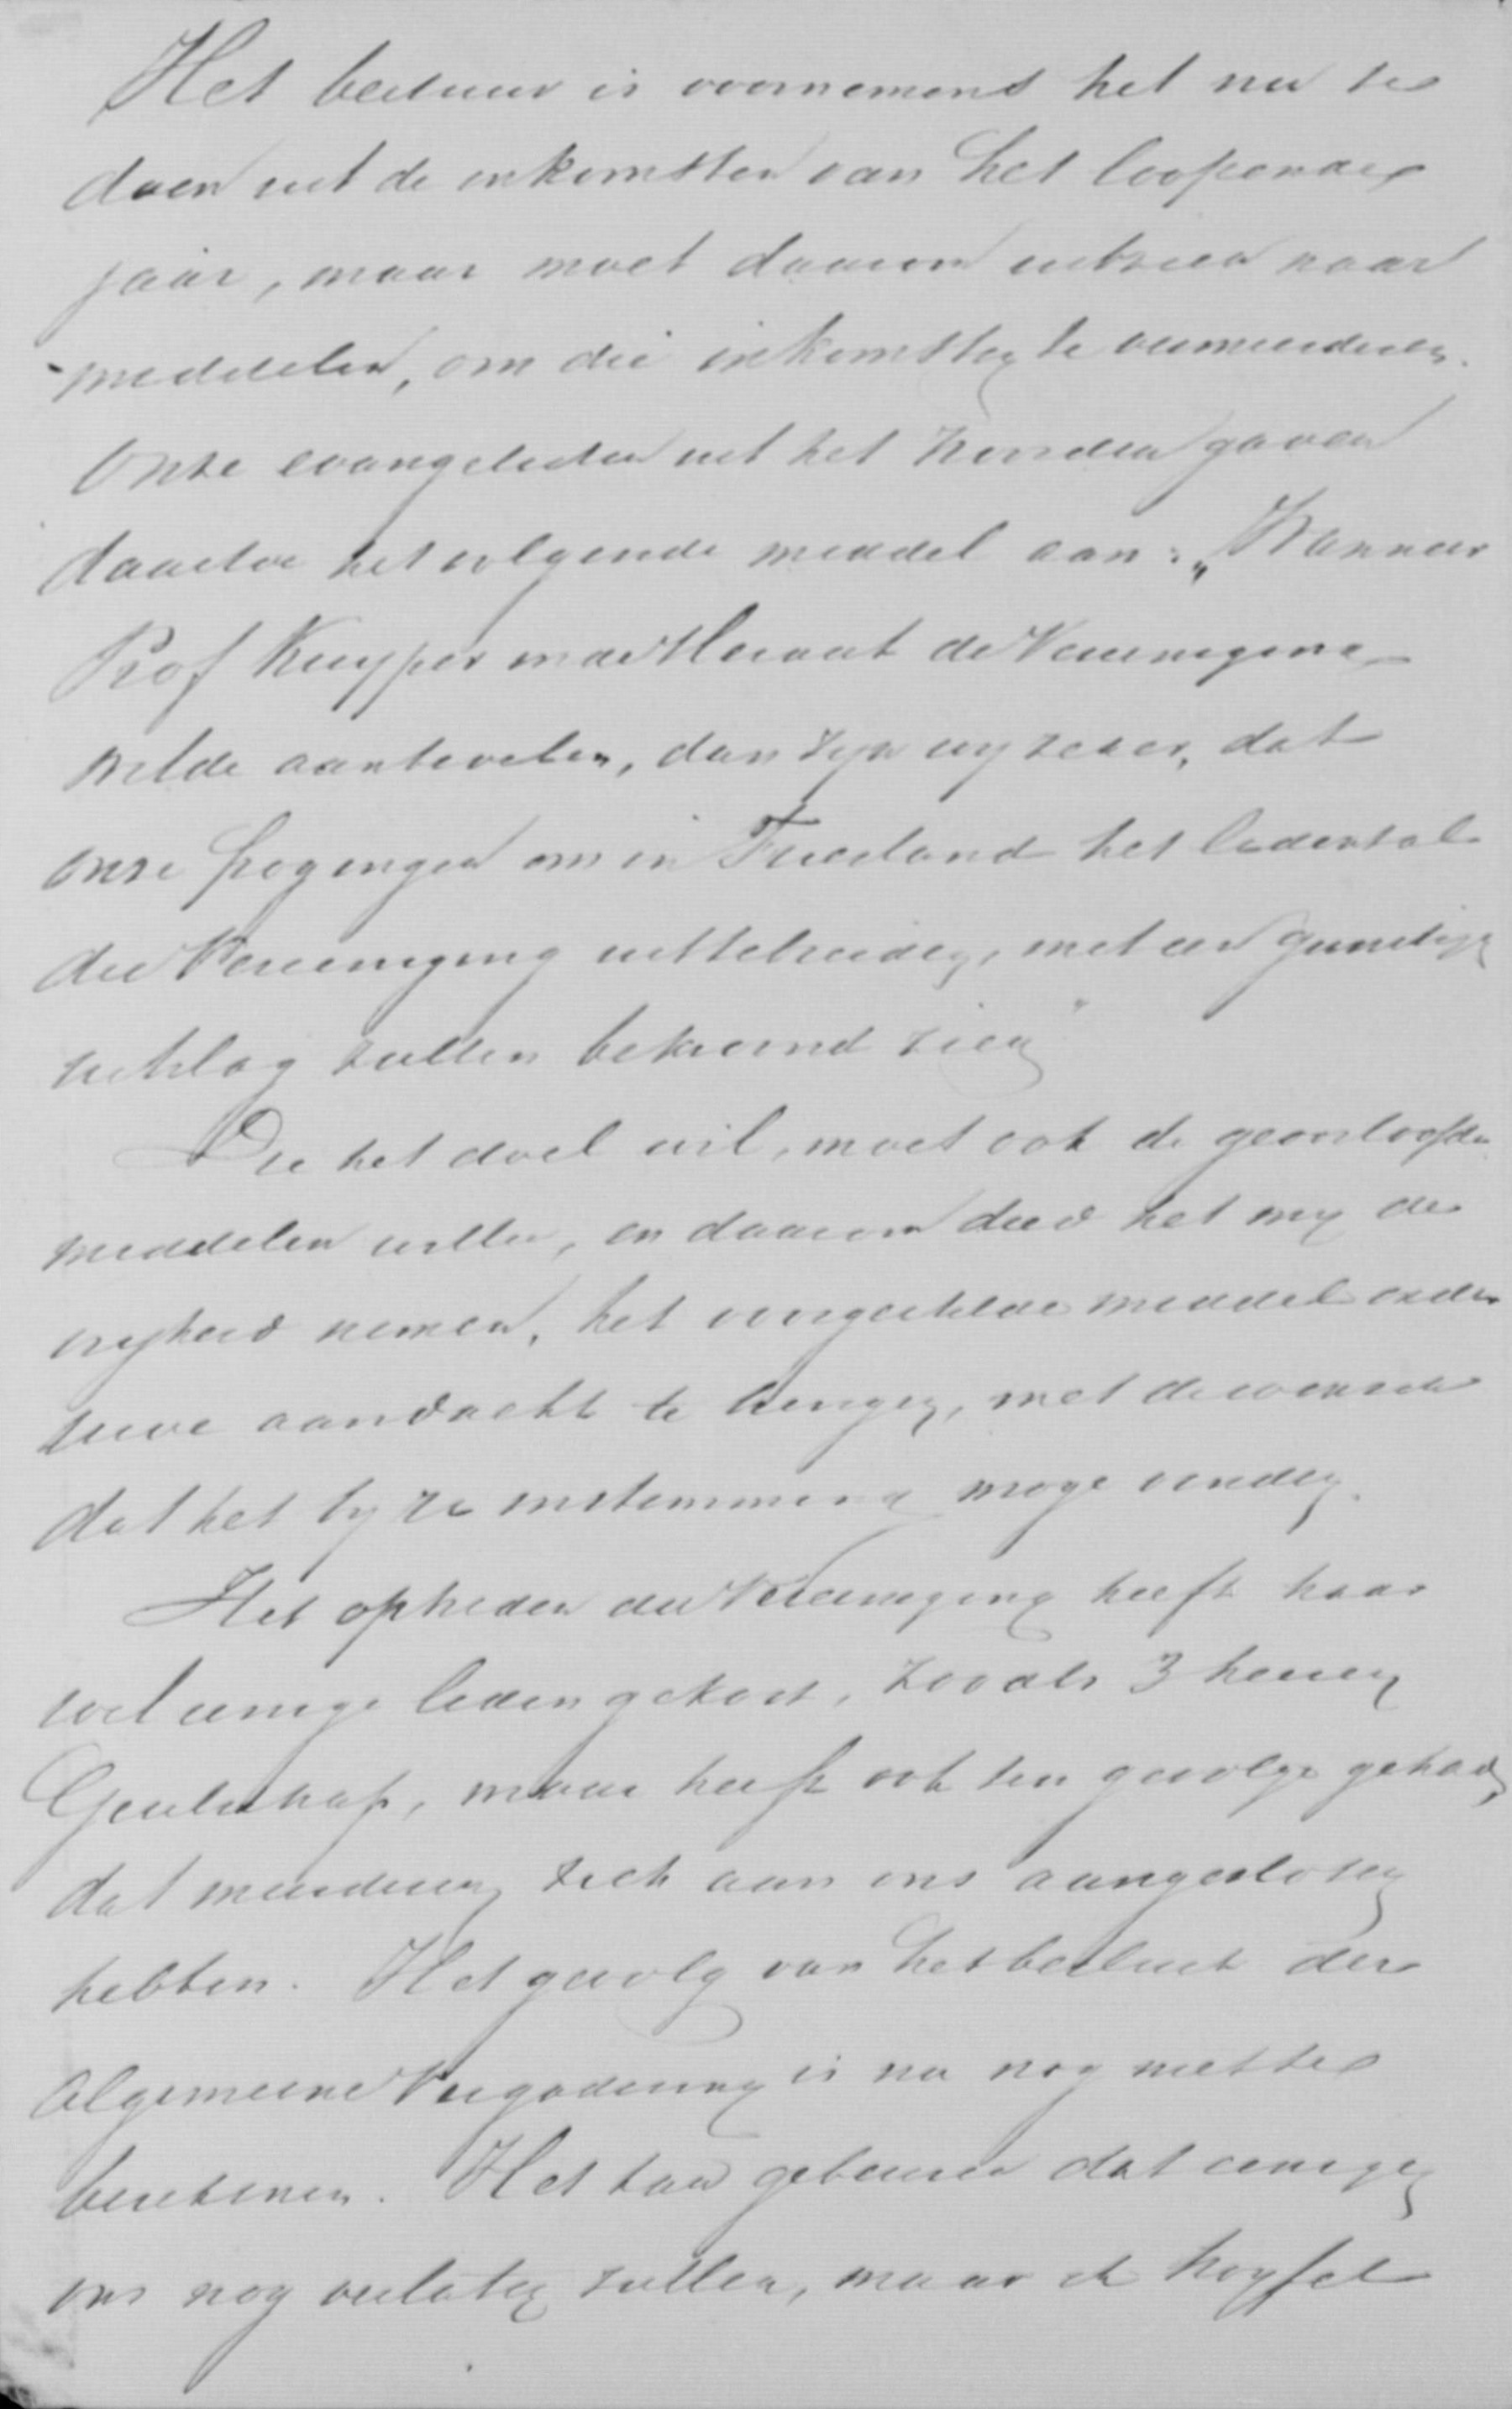 Het bestuur is voornemens het nu te
doen uit de inkomsten van het loopende
jaar, maar moet daarom uitzien naar
middelen, om die inkomsten te vermeerderen.
Onze evangelisten uit het Noorden gaven
daartoe het volgende middel aan: „Wanneer
Prof Kuyper in de Heraut de Vereeniging
wilde aanbevelen, dan zijn wij zeker, dat
onze pogingen om in Friesland het ledental
der Vereeniging uittebreiden, met een gunstig
uitslag zullen bekroond zien"
Die het doel wil, moet ook de geoorloofde
middelen willen, en daarom deed het mij de
vrijheid nemen, het voorgestelde middel onder
uwe aandacht te brengen, met de wensch
dat het bij ze instemming moge vinden.
Het optreden der Vereeniging heeft haar
wel eenige leden gekost, zooals 3 heeren
maar heeft ook ten gevolge gehad,
dat meerderen zich aan ons aangesloten
hebben. Het gevolg van het besluit der
Algemeene Vergadering is nu nog niet te
berekenen. Het kan gebeuren dat eenigen
ons nog verlaten zullen, maar ik